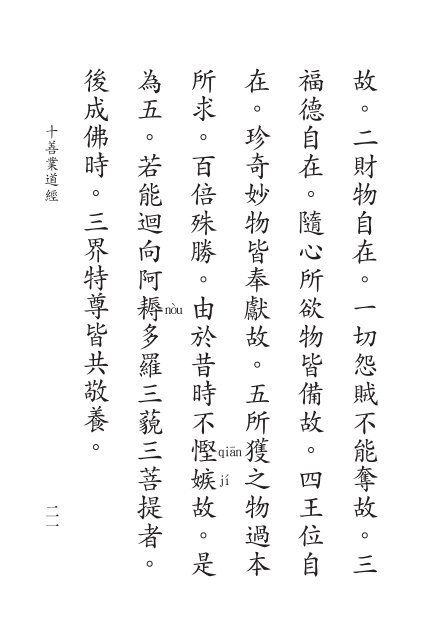 故。二財物自在。一切怨賊不能奪故。三
福德自在。隨心所欲物皆備故。四王位自
在。珍奇妙物皆奉獻故。五所獲之物過本
所求。百倍殊勝。由於昔時不慳qiān嫉jí故。是
為五。若能迴向阿耨nòu多羅三藐三菩提者。
後成佛時。三界特尊皆共敬養。
十善業道經
二一